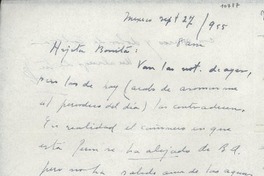 Mexico sept 27/955
8 am
Hijita Bonita:
Van las not. de ayer,
sin las de hoy (acabo de asomarme
al periodico del dia) las contradicen.
En realidad el comienzo en que
esta Peron se ha alejado de B.A.
pero no ha salido aun de las aguas